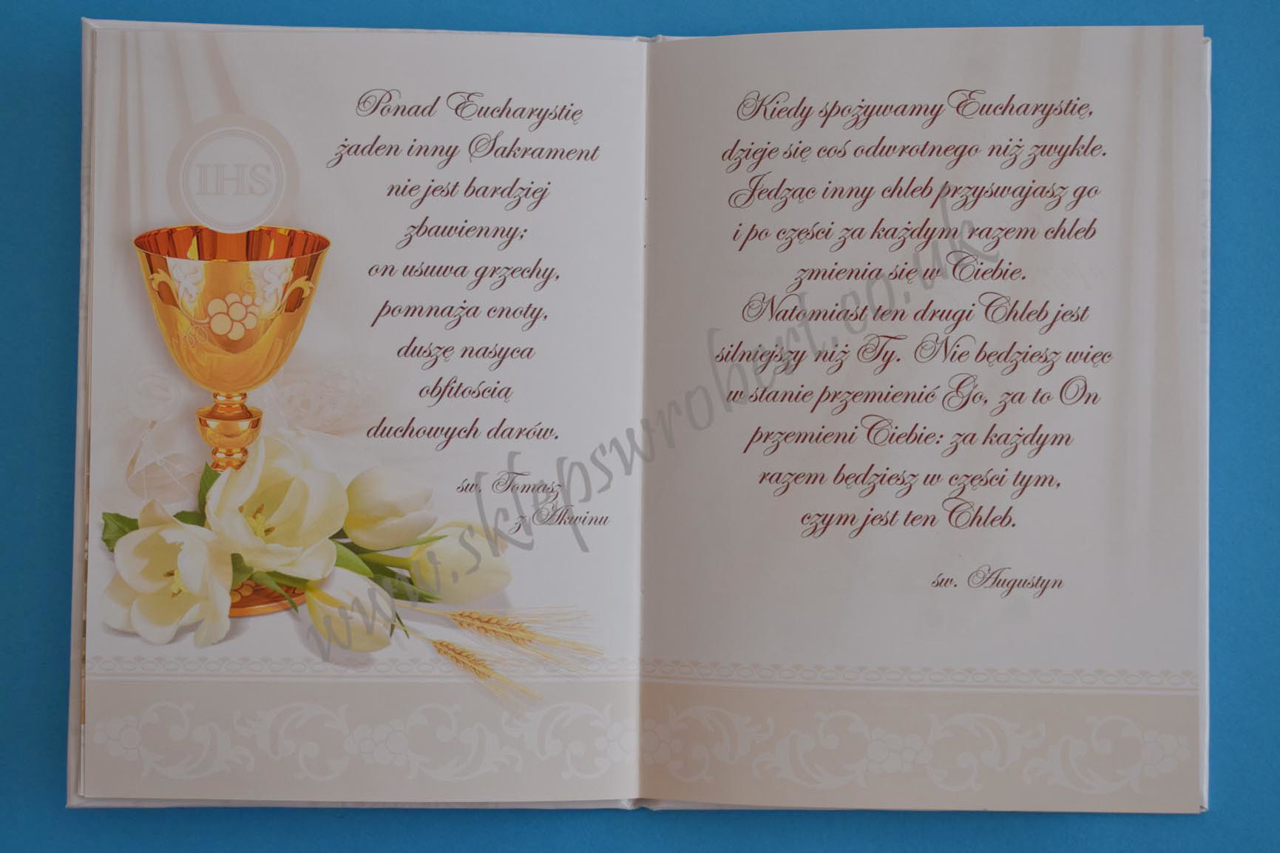 IHS
Ponad Eucharystię
żaden inny Sakrament
nie jest bardziej
zbawienny;
on usuwa grzechy,
pomnaża cnoty,
duszę nasyca
obfitością
duchowych darów.
św. Tomasz
z Akwinu
Kiedy spożywamy Eucharystię,
dzieje się coś odwrotnego niż zwykle.
Jedząc inny chleb przyswajasz go
i po części za każdym razem chleb
zmienia się w Ciebie.
Natomiast ten drugi Chleb jest
silniejszy niż Ty. Nie będziesz więc
w stanie przemienić Go, za to On
przemieni Ciebie: za każdym
razem będziesz w części tym,
czym jest ten Chleb.
św. Augustyn
www.sklepswrobert.co.uk